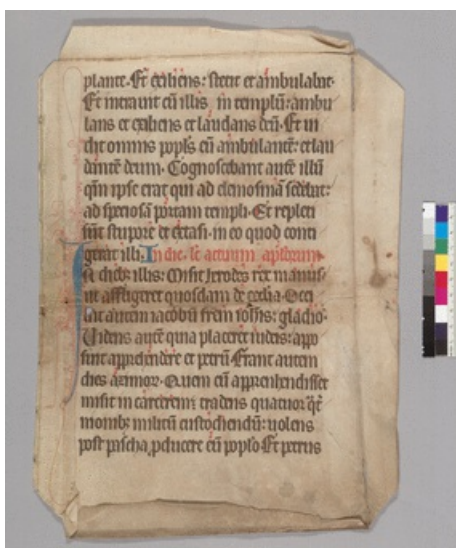 plante. Et exiliens: stetit et ambulabat.
Et intravit cū illis in templū: ambu
lans et exiliens et laudans deū. Et vi
dit omnis popl̄s eū ambulantē: et lau
dantē deum. Cognoscebant autē illū
qm̄ ipse erat qui ad elemosinā sedebat:
ad speciosā portam templi. Et repleti
sūt stupore et extasi: in eo quod conti
gerat illi. In die. lc̄ actuum apl̄orum.
In dieb; illis: Misit herodes rex manus.
ut affligeret quosdam de eccl̄ia. Occi
dit autem iacobū frem̄ ioh̄is: gladio.
Videns autē quia placeret iudeis: appo
suit apprehendere et petrū. Erant autem
dies azimor. Quem cū apprehendisset
misit in carcerem: tradens quatuor q̄t
nionib; militū custodiendū: volens
post pascha, ꝓducere eū poplo Et petrus